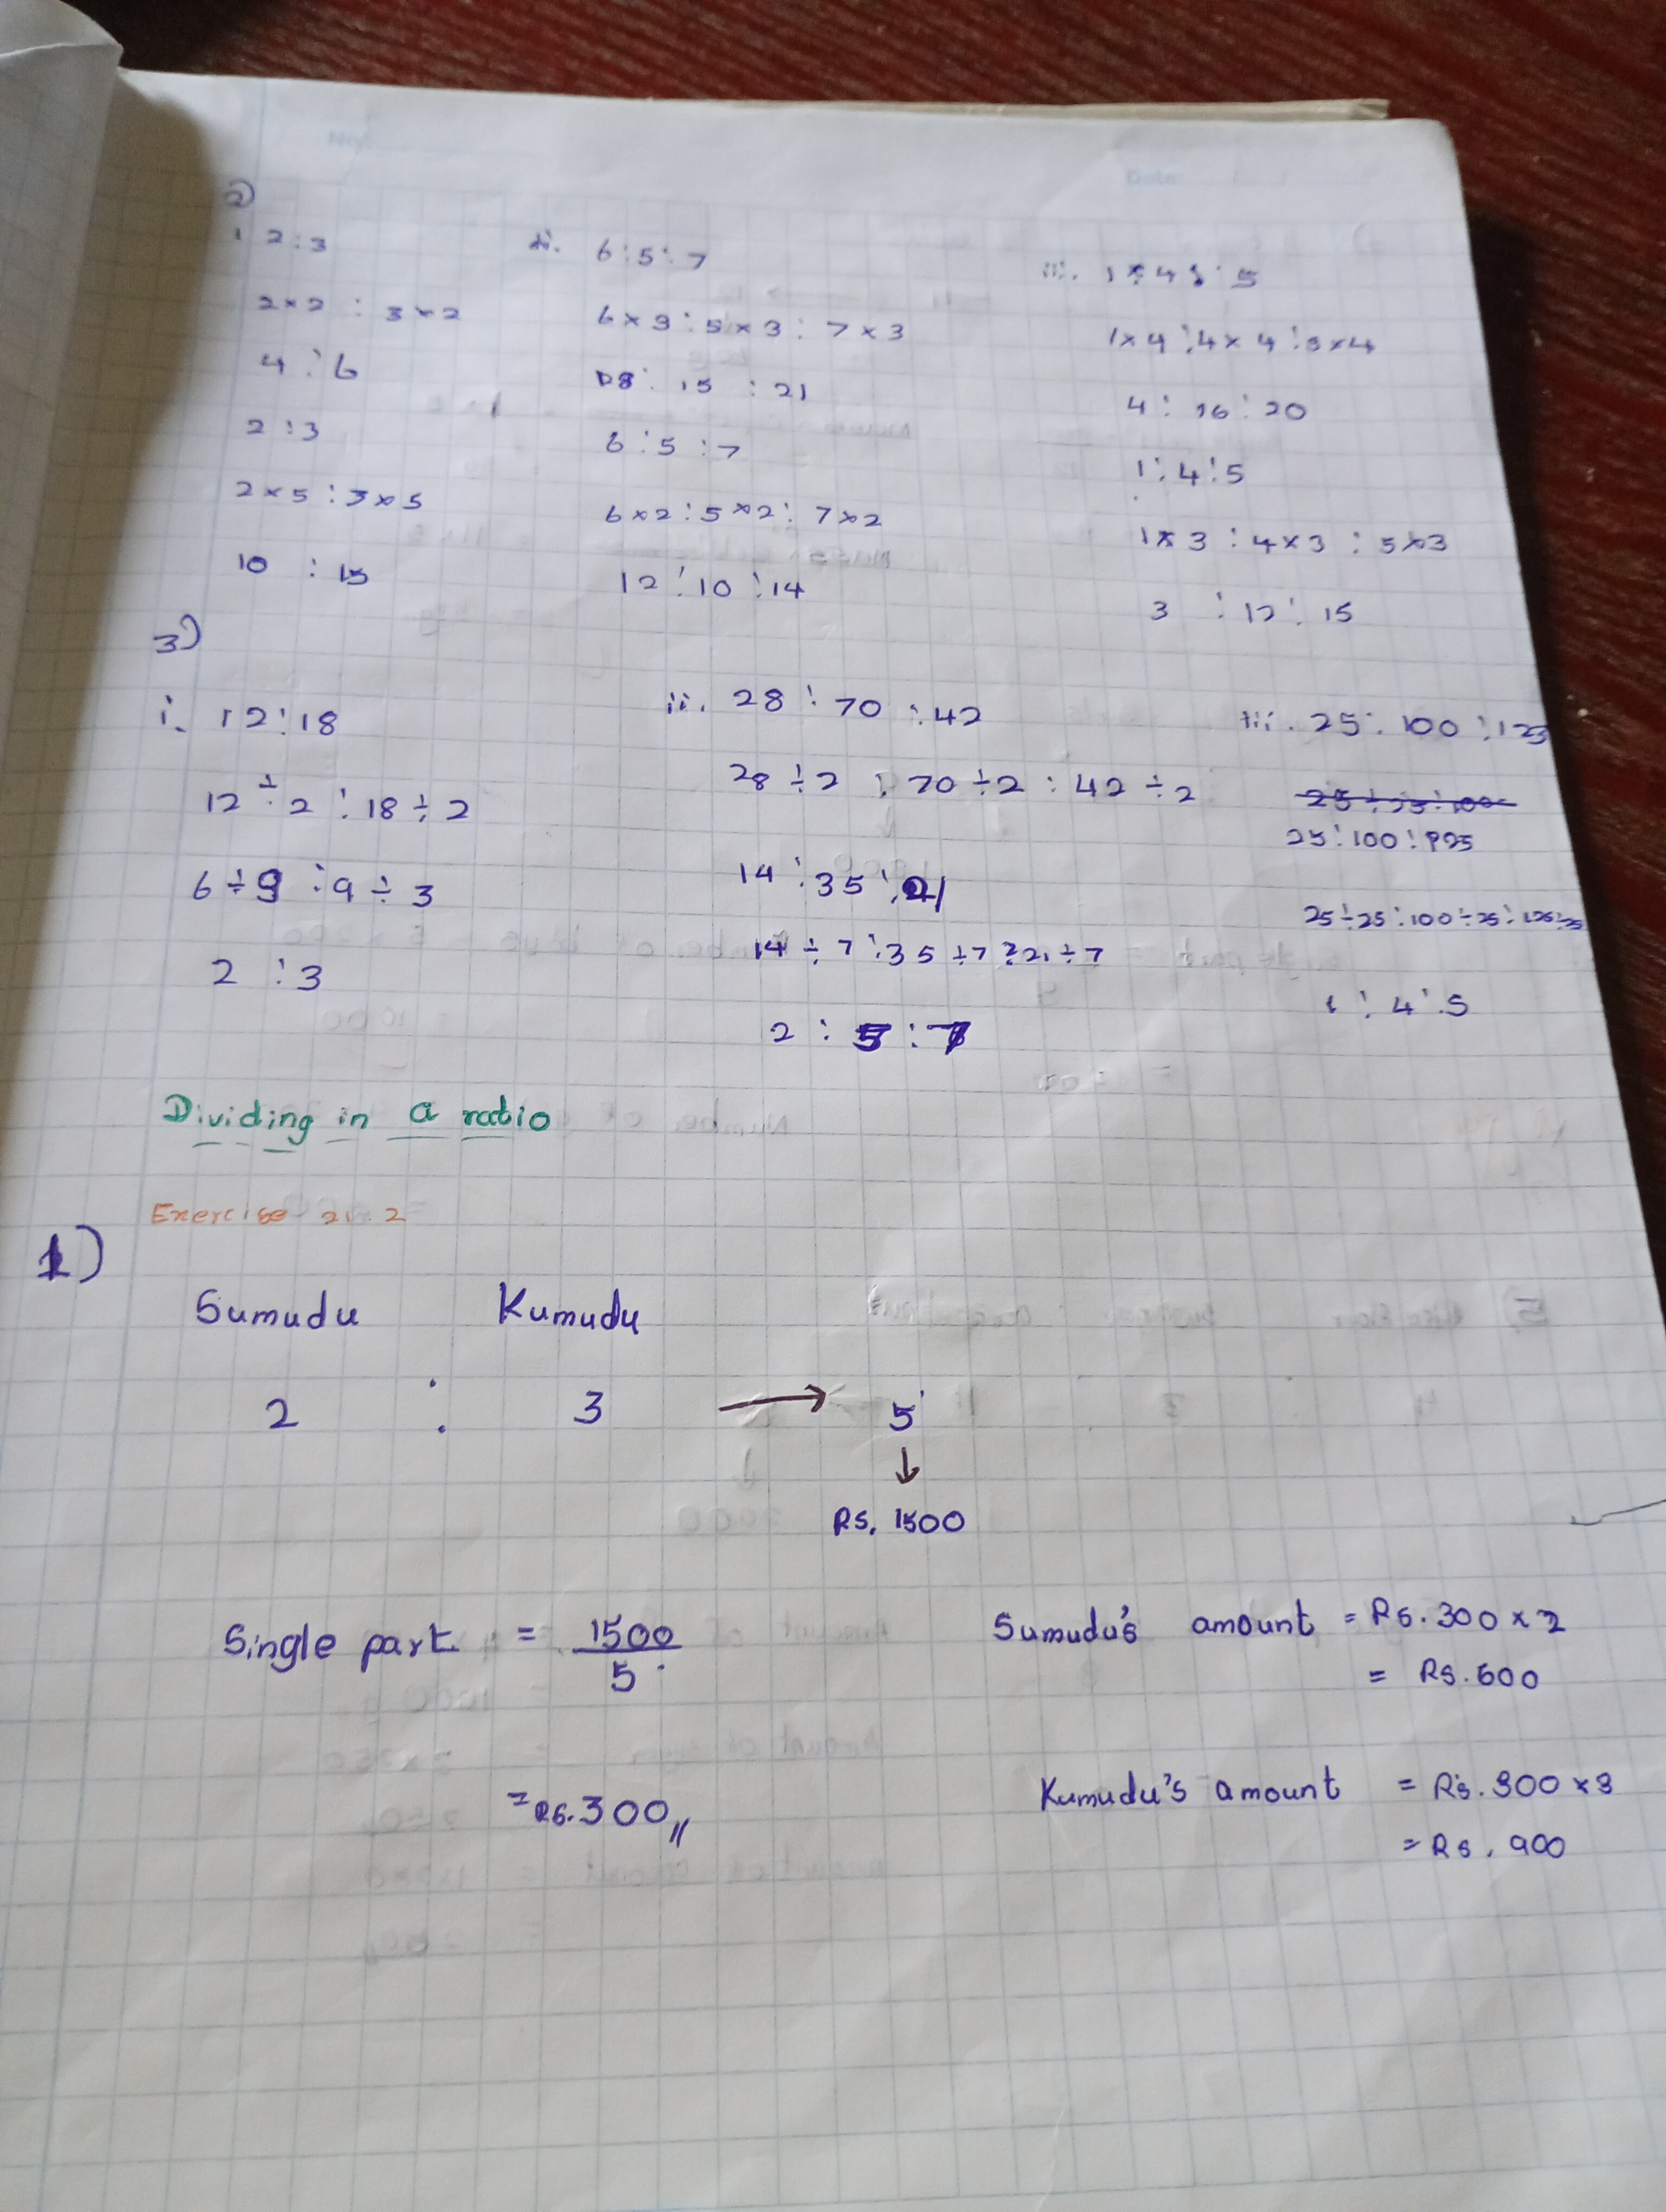 2)
i 2 : 3
2 × 2 : 3 × 2
4 : 6
2 : 3
2 × 5 : 3 × 5
10 : 15
ii. 6 : 5 : 7
6 × 3 : 5 × 3 : 7 × 3
18 : 15 : 21
6 : 5 : 7
6 × 2 : 5 × 2 : 7 × 2
12 : 10 : 14
iii. 1 : 4 : 5
1 × 4 : 4 × 4 : 5 × 4
4 : 16 : 20
1 : 4 : 5
1 × 3 : 4 × 3 : 5 × 3
3 : 12 : 15
3)
i. 12 : 18
12 ÷ 2 : 18 ÷ 2
6 ÷ 3 : 9 ÷ 3
2 : 3
ii. 28 : 70 : 42
28 ÷ 2 : 70 ÷ 2 : 42 ÷ 2
14 : 35 : 21
14 ÷ 7 : 35 ÷ 7 : 21 ÷ 7
2 : 5 :
iii. 25 : 100 : 125
25 : 100 : 125
25 ÷ 25 : 100 ÷ 25 : 125 ÷ 25
1 : 4 : 5
Dividing in a ratio
Exercise 21.2
1)
Sumudu Kumudu
2 : 3 → 5
↓
Rs. 1500
Single part = 1500
5
= Rs. 300,,
Sumudu's amount = Rs. 300 × 2
= Rs. 600
Kumudu's amount = Rs. 300 × 3
= Rs. 900